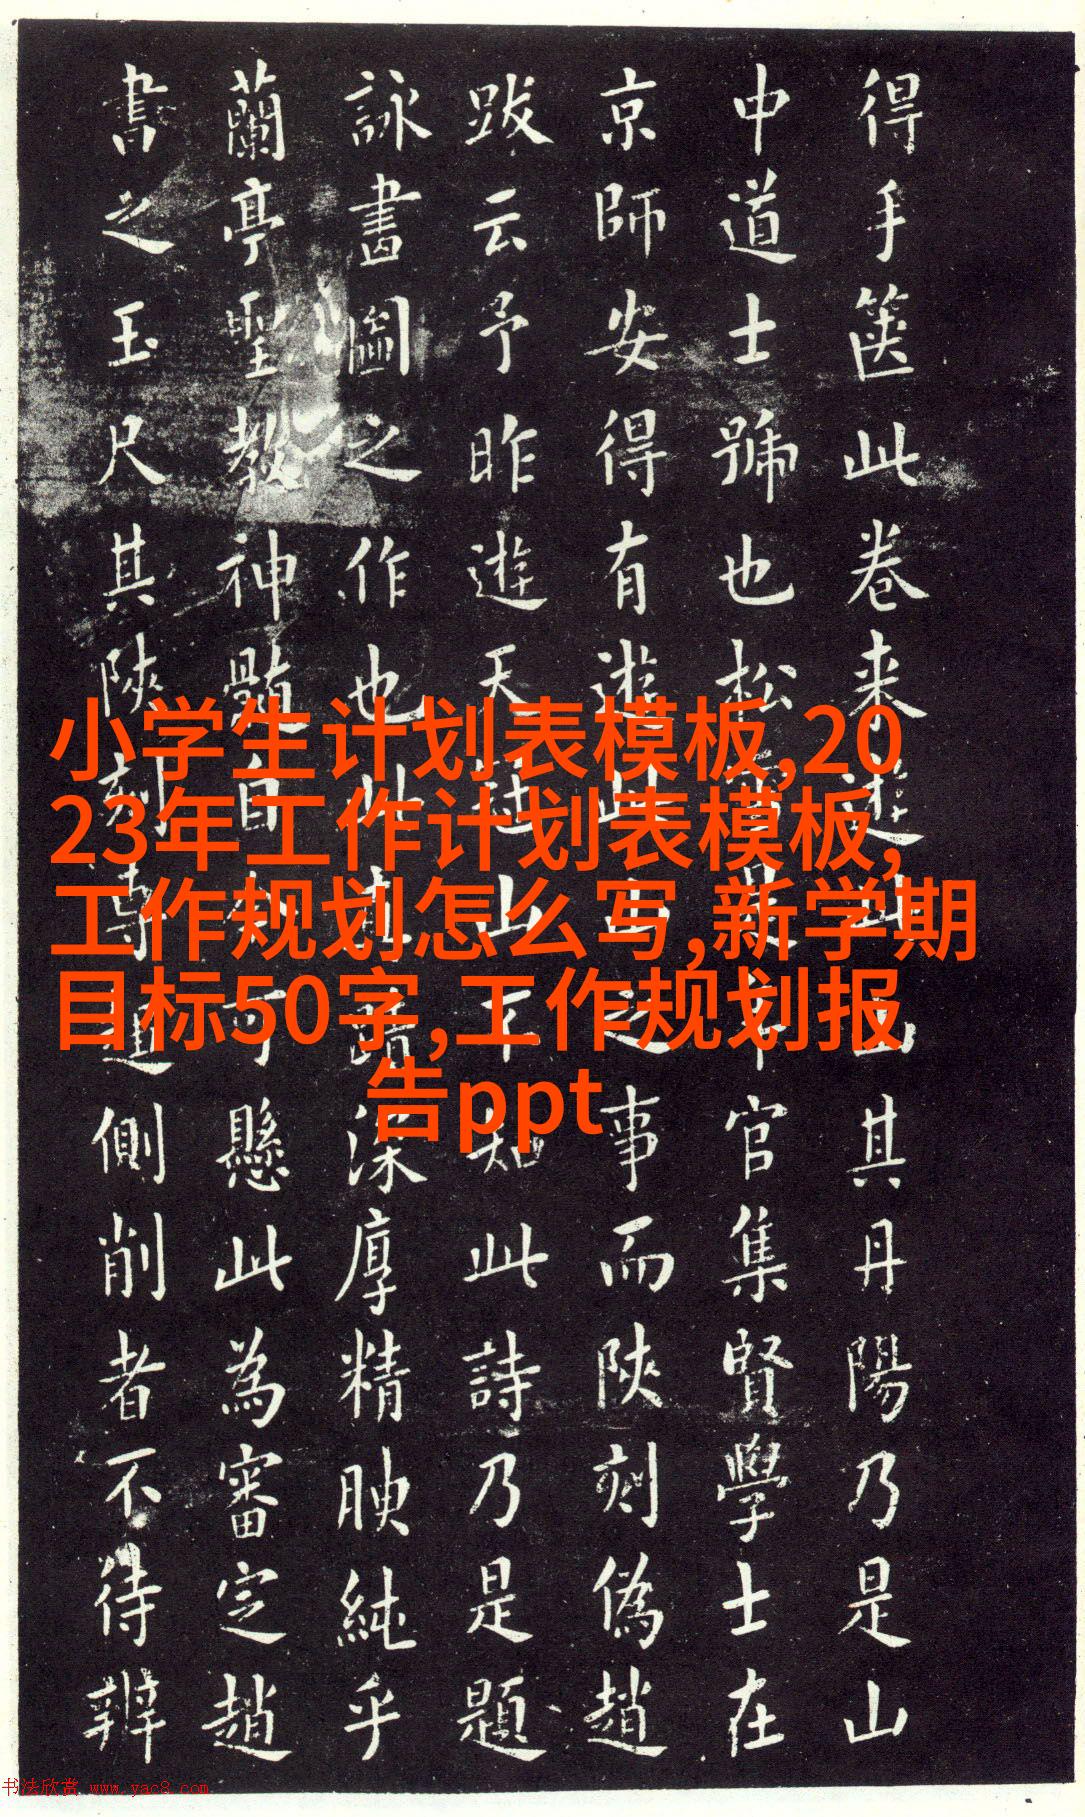 小学生计划表模板,20
23年工作计划表模板,
工作规划怎么写,新学期
目标50字,工作规划报
告ppt
得手篋此卷来遊山其丹陽乃是山
中道士號也松官集賢學士在
京師安得有遊此山之事而陝刻偽趙
跋云予昨遊天冠山不知此詩乃是題
詠畫圖之作也此蹟深厚精腴純乎
蘭亭聖教神髓自可懸此為審定趙
書之玉尺其陝刻專側削者不待辨
书法欣赏 www.yac8.com